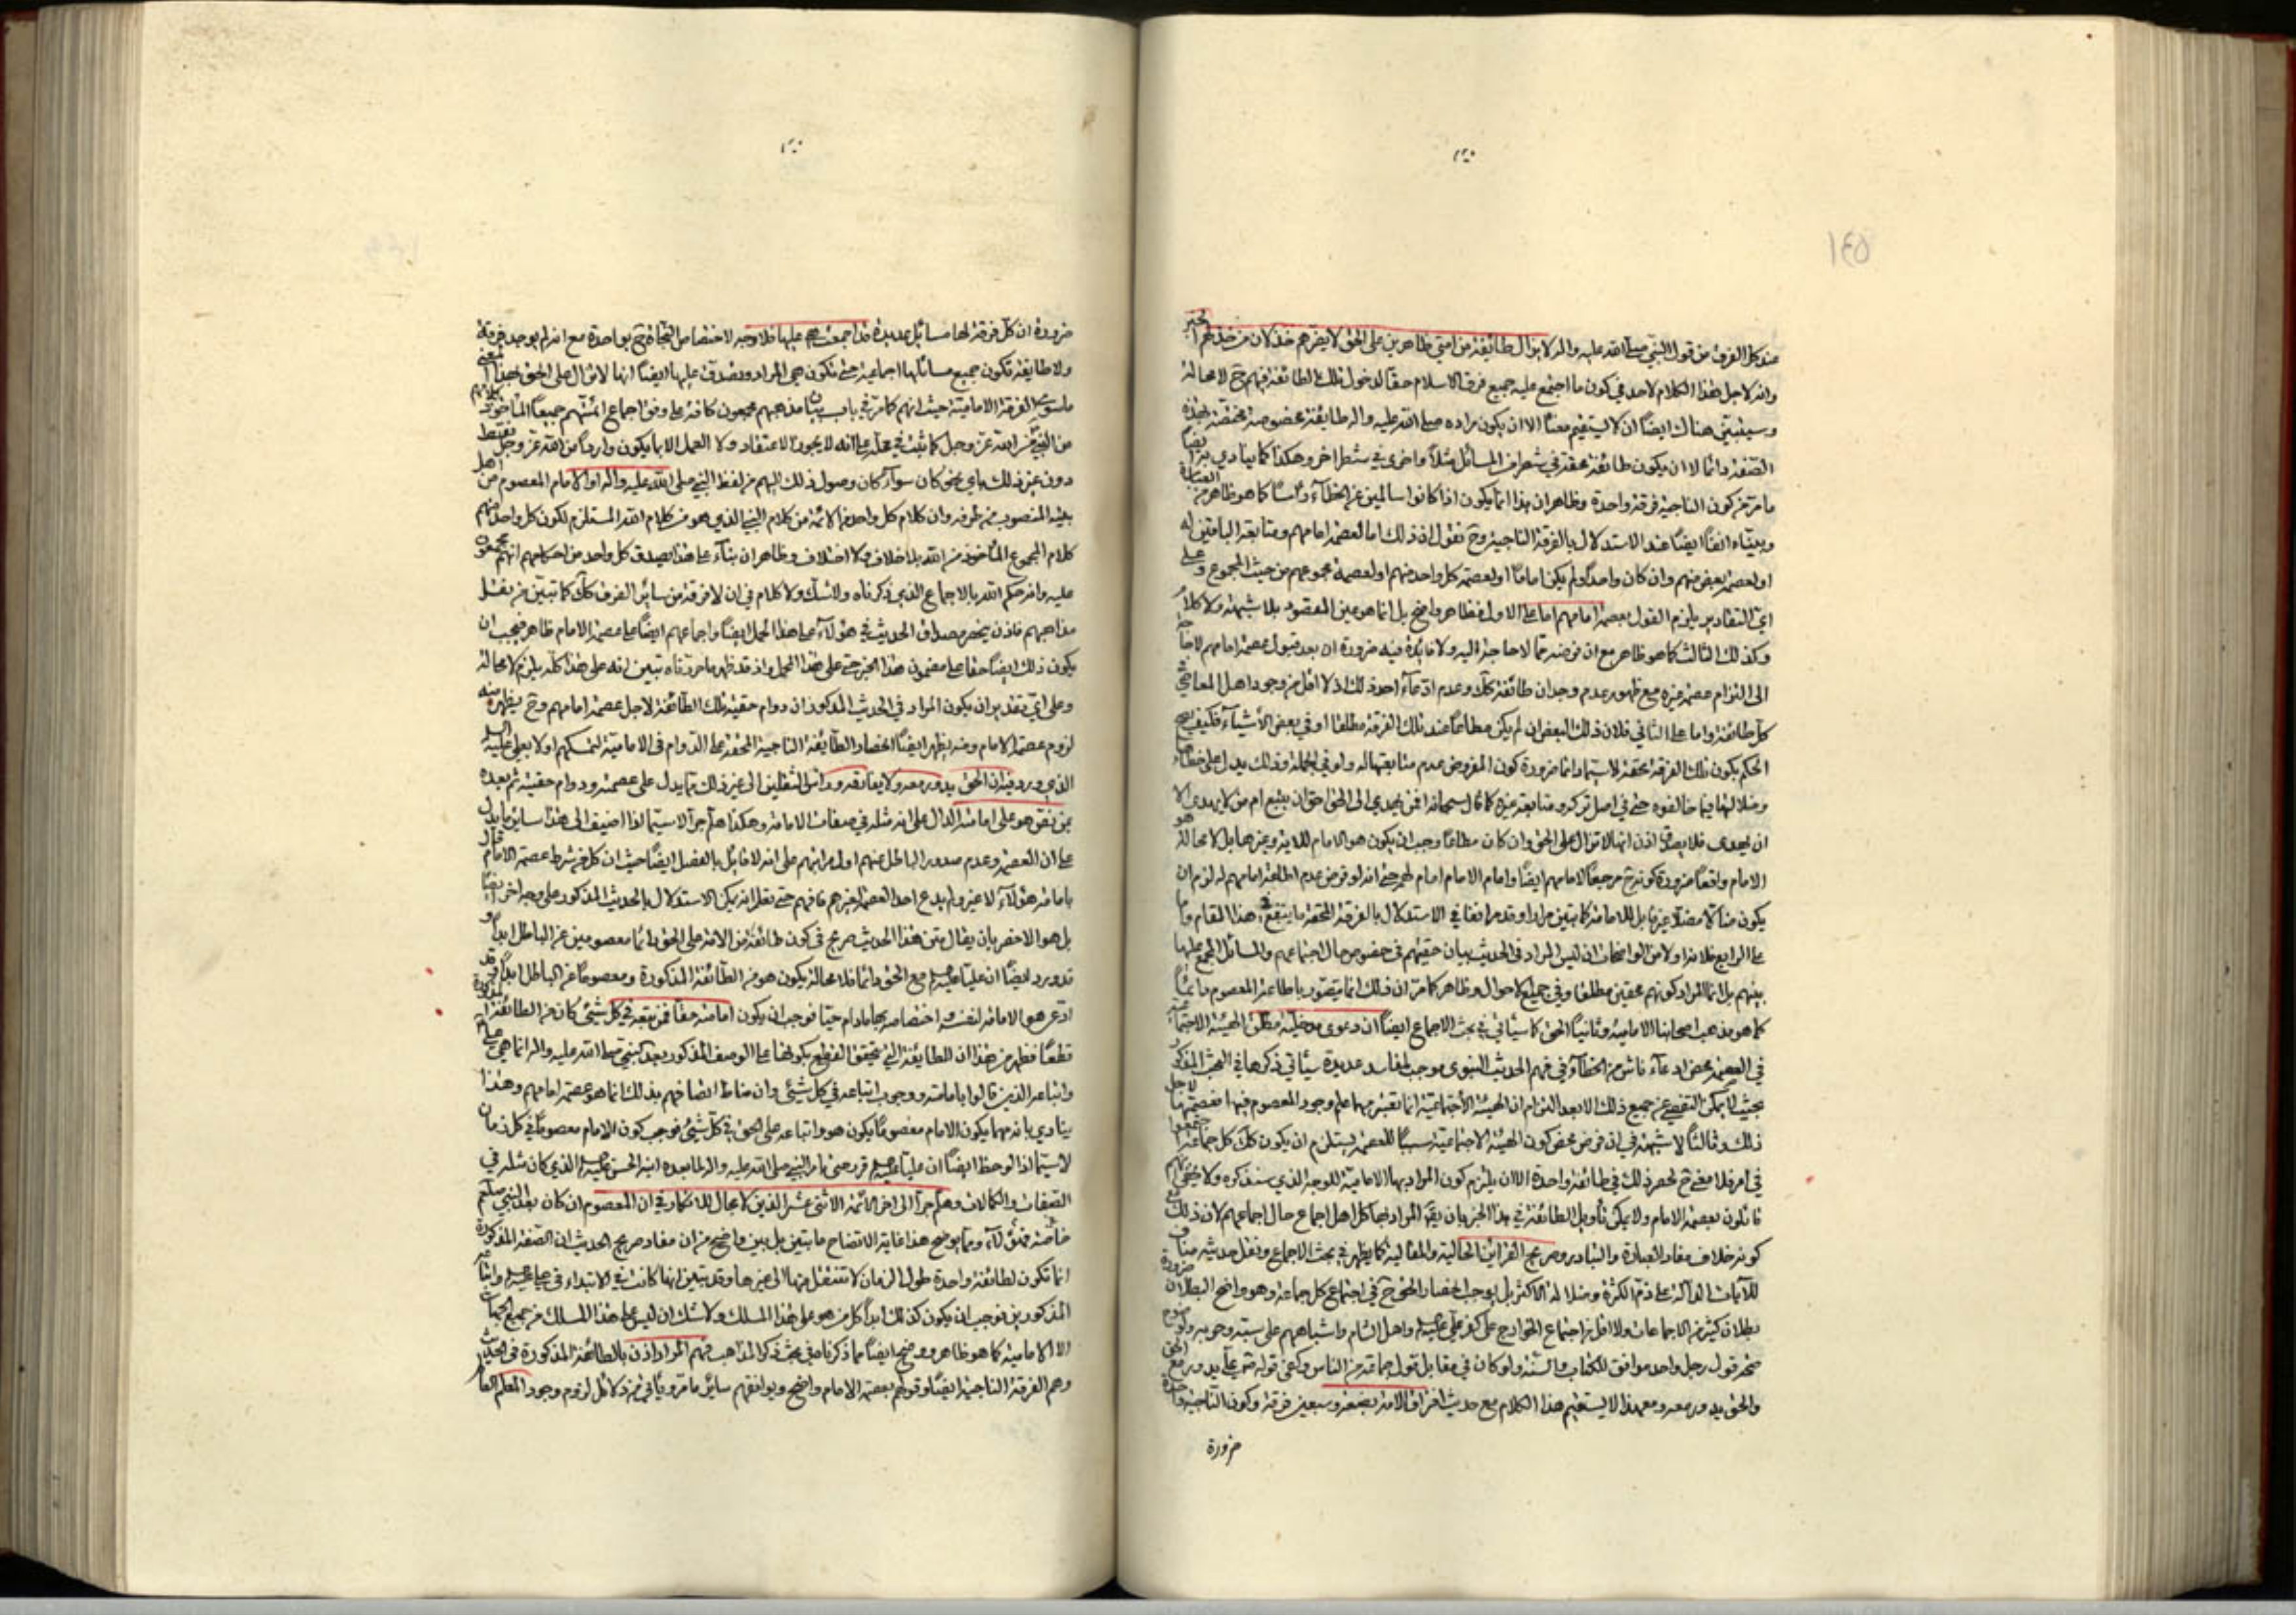 ١٤٥
عند كل الفرق من قول النبي صلى الله عليه واله لا يزال طائفة من امتي ظاهرين على الحق لا يضرهم خذلان من خذلهم
وانه لاجل هذا الكلام لاحد في كون ما اجتمع عليه جميع فرق الاسلام حقا لدخول تلك الطائفة فيهم ح لا محالة
وسيتبين هناك ايضاً ان لا يستقيم معناه الا ان يكون مراده صلى الله عليه واله طائفة مخصوصة مختصة بهذه
الصفة دائما لا ان يكون طائفة محقة في شطر من المسائل مثلاً واخرى في شطر اخر وهكذا كما ينادي به
ما مر من كون الناجية فرقة واحدة وظاهر ان هذا انما يكون اذا كانوا سالمين عن الخطاء رأساً كما هو ظاهر من
وبيناه انفاً ايضاً عند الاستدلال بالفرقة الناجية وح نقول ان ذلك اما لعصمة امامهم ومتابعة الباقين له
او لعصمة بعض منهم وان كان واحداً ولم يكن اماماً او لعصمة كل واحد منهم او لعصمة مجموعهم من حيث المجموع وعلى
اي التقادير يلزم القول بعصمة امامهم اما على الاول فظاهر واضح بل انما هو عين المقصود بلا شبهة ولا كلام
وكذلك الثالث كما هو ظاهر مع ان فرضه مما لا حاجة اليه ولا فائدة فيه ضرورة ان بعد قبول عصمة امامهم لا حاجة
الى التزام عصمة غيره مع ظهور عدم وجدان طائفة كك وعدم ادعاء احد ذلك اذ لا اقل من وجود اهل المعاصي في
كل طائفة واما على الثاني فلان ذلك البعض ان لم يكن مطاعاً عند تلك الفرقة مطلقا او في بعض الاشياء فكيف يصح
الحكم بكون تلك الفرقة محقة لا سيما دائما ضرورة كون المفروض عدم متابعتها له ولو في الجملة وذلك يدل على خطاء
وضلالتها فيما خالفوه حتى في اصل تركه ومتابعة غيره كما قال سبحانه افمن يهدي الى الحق احق ان يتبع ام من لا يهدي الا
ان يهدى فلا يصدق اذن انها لا تزال على الحق وان كان مطاعاً وجب ان يكون هو الامام
الامام واقعاً ضرورة كونه ح مرجعاً لامامهم ايضاً وامام الامام امام لهم حتى انه لو فرض عدم اطاعة امامهم له لزم ان
يكون ضالا مضلا غير قابل للامامة كما تبين مراراً وقد مر انفاً في الاستدلال بالفرقة المحقة ما ينفع في هذا المقام واما
على الرابع فلانه اولا من الواضحات ان ليس المراد في الحديث بيان حقيتهم في خصوص حال اجتماعهم والمسائل المجمع عليها
بينهم بل انما المراد كونهم محقين مطلقا وفي جميع الاحوال وظاهر كما مر ان ذلك انما يتصور باطاعة المعصوم دائماً
كما هو مذهب اصحابنا الامامية وثانياً الحق كما سيأتي في بحث الاجماع ايضاً ان دعوى مدخلية مطلق الهيئة الاجتماعية
في العصمة محض ادعاء ناش من الخطاء في فهم الحديث النبوي موجب لمفاسد عديدة سيأتي ذكرها في البحث المذكور
بحيث لا يمكن التفصي عن جميع ذلك الا بعد التزام ان الهيئة الاجتماعية انما تعتبر مهما علم وجود المعصوم فيها فعصمتها لاجل
ذلك وثالثاً لا شبهة في ان فرض محض كون الهيئة الاجتماعية سبباً للعصمة يستلزم ان يكون كك كل جماعة اجتمعوا
في امر فلا معنى ح لحصر ذلك في طائفة واحدة الا ان يلتزم كون المراد بها الامامية للوجه الذي سنذكره ولا يخفى انهم
قائلون بعصمة الامام ولا يمكن تأويل الطائفة في هذا الخبر بان يقال المراد بها كل اهل اجماع حال اجماعهم لان ذلك مع
كونه خلاف مفاد العبارة والتبادر وصريح القرائن الحالية والمقالية كما يظهر في بحث الاجماع ونقل حديثه مناف
للآيات الدالة على ذم الكثرة وضلالة الاكثر بل يوجب انحصار الحق ح في اجتماع كل جماعة وهو واضح البطلان ضرورة
بطلان كثير من الاجماعات ولا اقل من اجتماع الخوارج على كفر علي عليه السلام واهل الشام واشباههم على سبه وحربه ووضوح
صحة قول رجل واحد موافق للكتاب والسنة ولو كان في مقابل قول جماعة من الناس وكفى قوله ص علي يدور مع الحق
والحق يدور معه ومع هذا لا يستقيم هذا الكلام مع حديث افتراق الامة ببضعة وسبعين فرقة وكون الناجية واحدة
ضرورة
ضرورة ان كل فرقة لها مسائل عديدة قد اجمعت هي عليها فلا وجه لاختصاص النجاة ح بواحدة مع انه لم يوجد فرقة
ولا طائفة تكون جميع مسائلها اجماعية حتى تكون هي المراد ويصدق عليها ايضاً انها لا تزال على الحق بهذا المعنى
ما سوى الفرقة الامامية حيث انهم كما مر في باب بيان مذهبهم مجمعون كافة على وفق اجماع ائمتهم جميعاً المأخوذ
من النبي ص من الله عز وجل كما ثبت في محله على انه لا يجوز الاعتقاد ولا العمل الا بما يكون وارداً من الله عز وجل فقط
دون غير ذلك باي نحو كان سواء كان وصول ذلك اليهم من لفظ النبي صلى الله عليه واله او الامام المعصوم من اهل
بيته المنصوب من طرفه وان كلام كل واحد من الائمة من كلام النبي الذي هو من كلام الله المستلزم لكون كل واحد
كلام المجموع المأخوذ من الله بلا خلاف ولا اختلاف وظاهر ان بناء على هذا يصدق كل واحد من احكامهم انهم مجمعون
عليه وانه حكم الله بالاجماع الذي ذكرناه ولا شك ولا كلام في ان لا فرقة من سائر الفرق كك كما تبين من نقل
مذاهبهم فاذن ينحصر مصداق الحديث في هؤلاء على هذا الحمل ايضاً واجماعهم ايضاً على عصمة الامام ظاهر فيجب ان
يكون ذلك ايضاً حقا على مضمون هذا الخبر حتى على هذا الحمل واذ قد ظهر ما حررناه تبين انه على هذا كله يلزم لا محالة
وعلى اي تقدير ان يكون المراد في الحديث المذكور ان دوام حقية تلك الطائفة لاجل عصمة امامهم وح يظهر منه
لزوم عصمة الامام ومنه يظهر ايضاً انحصار الطائفة الناجية المحقة على الدوام في الامامية لتمسكهم اولا بعلي عليه السلام
الذي ورد فيه ان الحق يدور معه ولا يفارقه وانه احد الثقلين الى غير ذلك مما يدل على عصمته ودوام حقيته ثم بعده
بمن نص هو على امامته الدال على انه مثله في صفات الامامة وهكذا هلم جراً لا سيما اذا اضيف الى هذا سائر ما يدل
على ان العصمة وعدم صدور الباطل عنهم
بامامة هؤلاء لا غير ولم يدع احد العصمة لغيرهم فافهم حتى تعلم انه يمكن الاستدلال بالحديث المذكور على وجه اخر ايضاً
بل هو الاخصر بان يقال متن هذا الحديث صريح في كون طائفة من الامة على الحق دائما معصومين عن الباطل ابداً و
قد ورد ايضاً ان علياً عليه السلام مع الحق دائما فلا محالة يكون هو من الطائفة المذكورة ومعصوماً عن الباطل ابداً وقد
ادعى هو الامامة لنفسه واختصاصه بها ما دام حيا فوجب ان يكون امامته حقاً فمن تبعه في كل شيء كان من الطائفة المذكورة
قطعاً فظهر من هذا ان الطائفة التي تحقق القطع بكونها على الوصف المذكور بعد النبي صلى الله عليه واله انما هي علي
واتباعه الذين قالوا بامامته ووجوب اتباعه في كل شيء وان مناط اتصافهم بذلك انما هو عصمة امامهم وهذا
ينادي بانه مهما يكون الامام معصوماً يكون هو واتباعه على الحق في كل شيء فوجب كون الامام معصوماً في كل زمان
لا سيما اذا لوحظ ايضاً ان علياً عليه السلام قد وصى بامر النبي صلى الله عليه واله لما بعده ابنه الحسن عليه السلام الذي كان مثله في
الصفات والكمالات وهلم جراً الى اخر الائمة الاثنى عشر الذين لا مجال للانكار في ان المعصوم ان كان بعد النبي
خاصة فهؤلاء ومما يوضح هذا غاية الاتضاح ما تبين بل بين واضح من ان مفاد صريح الحديث ان الصفة المذكورة
انما تكون لطائفة واحدة طول الزمان لا تنتقل منها الى غيرها وقد تبين انها كانت في الابتداء في علي عليه السلام واتباعه
المذكورين فوجب ان يكون كذلك ابداً كل من هو على هذا المسلك ولا شك ان ليس على هذا المسلك من جميع الجهات
الا الامامية كما هو ظاهر ووضح ايضاً مما ذكرنا في بحث ذكر المذاهب فهم المراد اذن بالطائفة المذكورة في الحديث
وهم الفرقة الناجية ايضاً وقولهم بعصمة الامام واضح ويوافقهم سائر ما مر ويأتي من دلائل لزوم وجود المعلم العالم